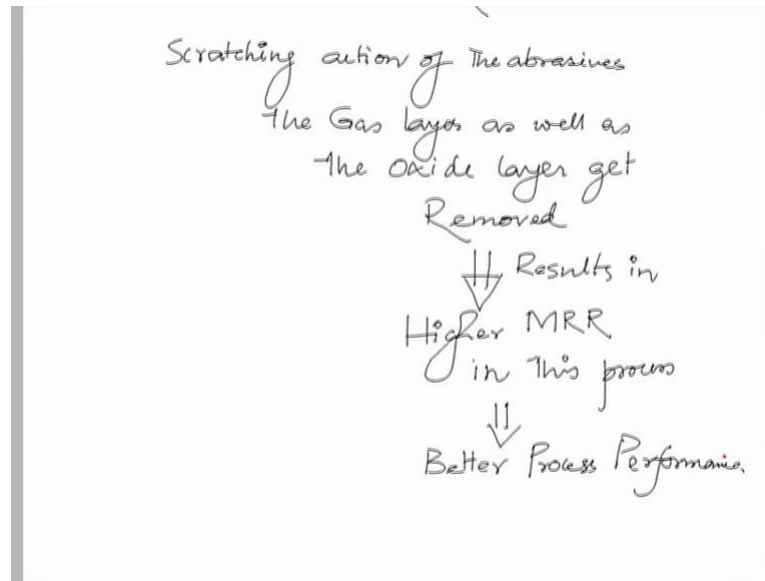 Scratching action of The abrasives
The Gas layer as well as
The oxide layer get
Removed
Results in
Higher MRR
in This process
Better Process Performance.